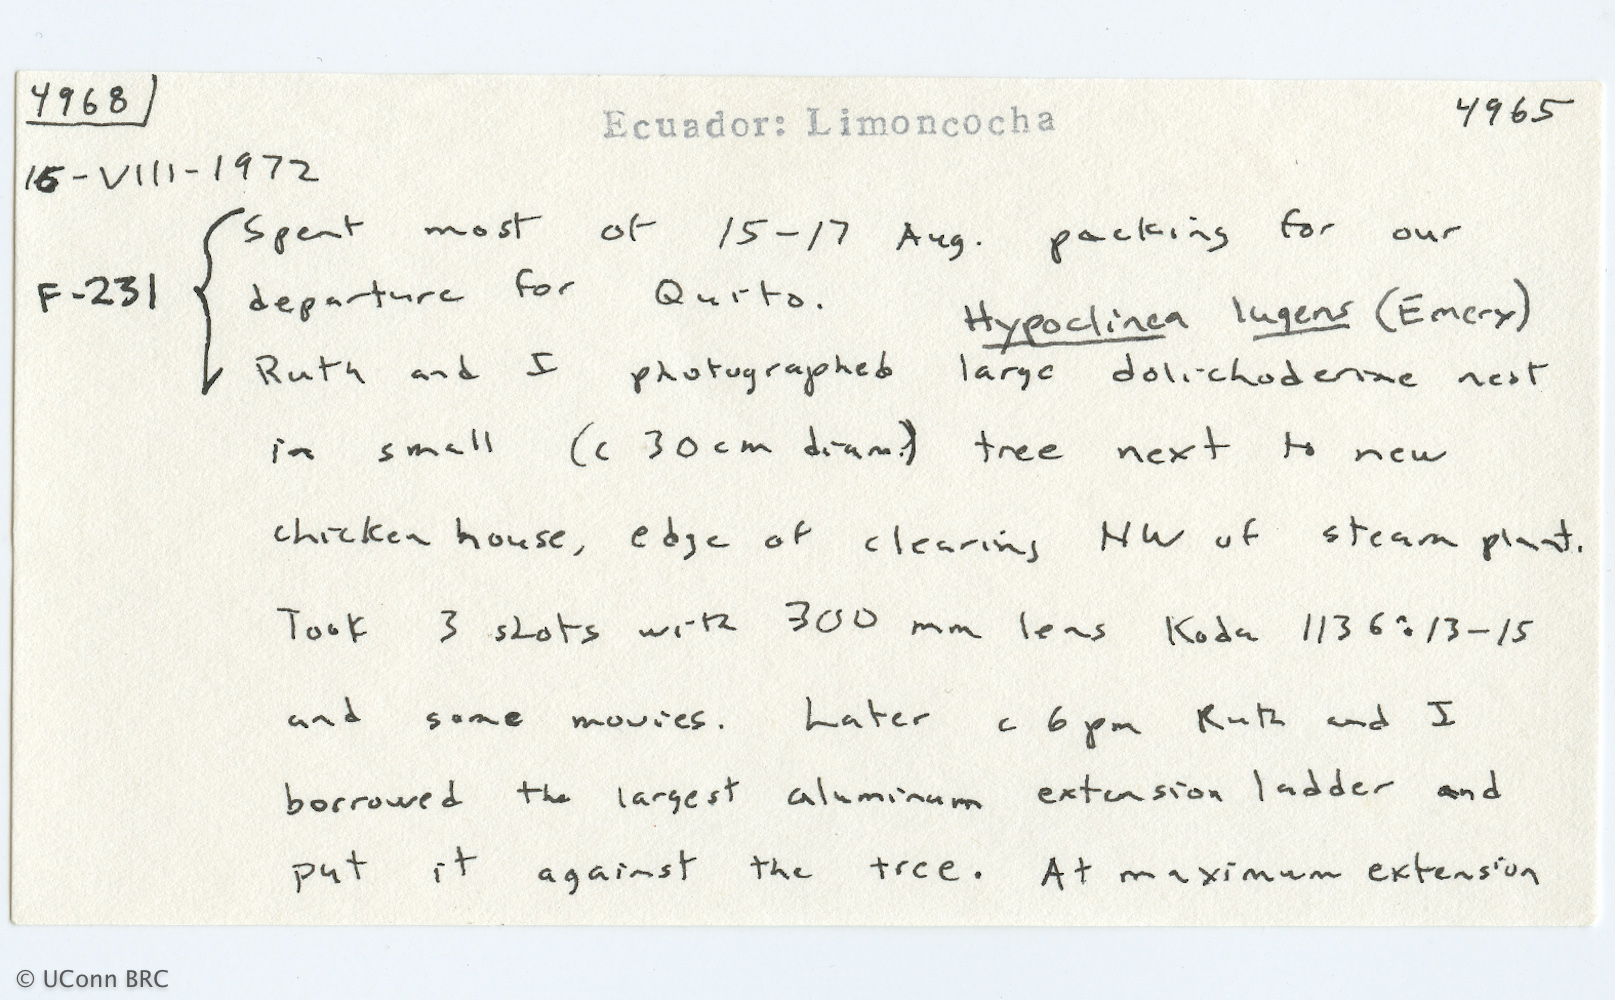 4968
Ecuador: Limoncocha
4965
15-VIII-1972
F-231
Spent most of 15-17 Aug. packing for our
departure for Quito.
Hypoclinea lugens (Emery)
Ruth and I photographed large dolichoderine nest
in small (c 30 cm diam.) tree next to new
chicken house, edge of clearing NW of steam plant.
Took 3 shots with 300 mm lens Koda 1136:13-15
and some movies. Later c 6 pm Ruth and I
borrowed the largest aluminum extension ladder and
put it against the tree. At maximum extension
© UConn BRC